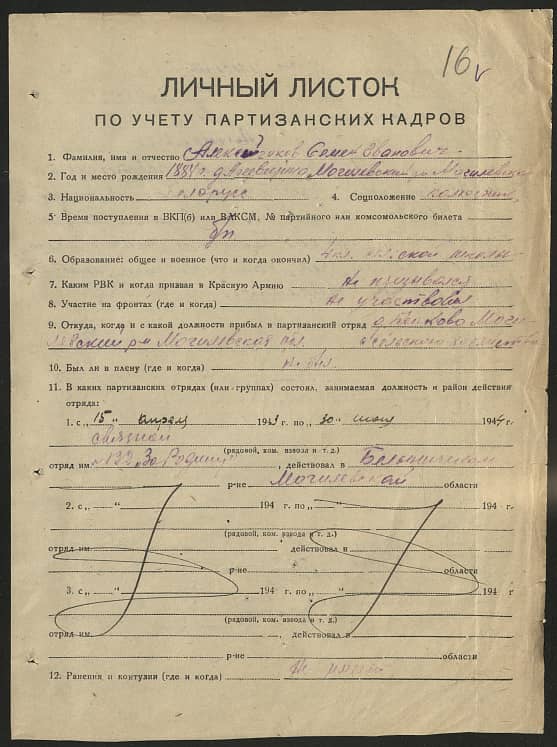 16
ЛИЧНЫЙ ЛИСТОК
ПО УЧЕТУ ПАРТИЗАНСКИХ КАДРОВ
1. Фамилия, имя и отчество Семен Иванович
2. Год и место рождения д. Могилевский р-н Могилевской
3. Национальность белорусс 4. Соцположение колхозник
5 Время поступления в ВКП(б) или ВЛКСМ, № партийного или комсомольского билета
б/п
6. Образование: общее и военное (что и когда окончил) школы
7. Каким РВК и когда призван в Красную Армию Не призывался
8. Участие на фронтах (где и когда) Не участвовал
9. Откуда, когда и с какой должности прибыл в партизанский отряд Моги-
левский р-н Могилевской обл.
10. Был ли в плену (где и когда) не был
11. В каких партизанских отрядах (или группах) состоял, занимаемая должность и район действия
отряда:
1. с „15„ апреля 1943 г. по „30„ июня 1944 г.
связной
(рядовой, ком. взвода и т. д.)
отряд им. №122 „За Родину", действовал в Белыничском
р-не Могилевской области
2. с „ “ 194 г. по „ “ 194 г.
(рядовой, ком. взвода и т. д.)
отряд им. действовал в
р-не области
3. с „ “ 194 г. по „ “ 194 г
(рядовой, ком. взвода и т. д.)
отряд им. действовал в
р-не области
12. Ранения и контузии (где и когда) Не имеет